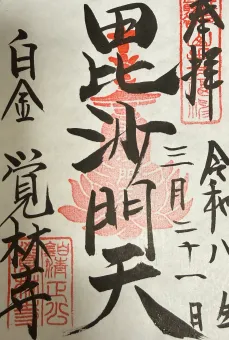 奉拝
令和八年
三月二十一日
毘沙門天
白金
覚林寺